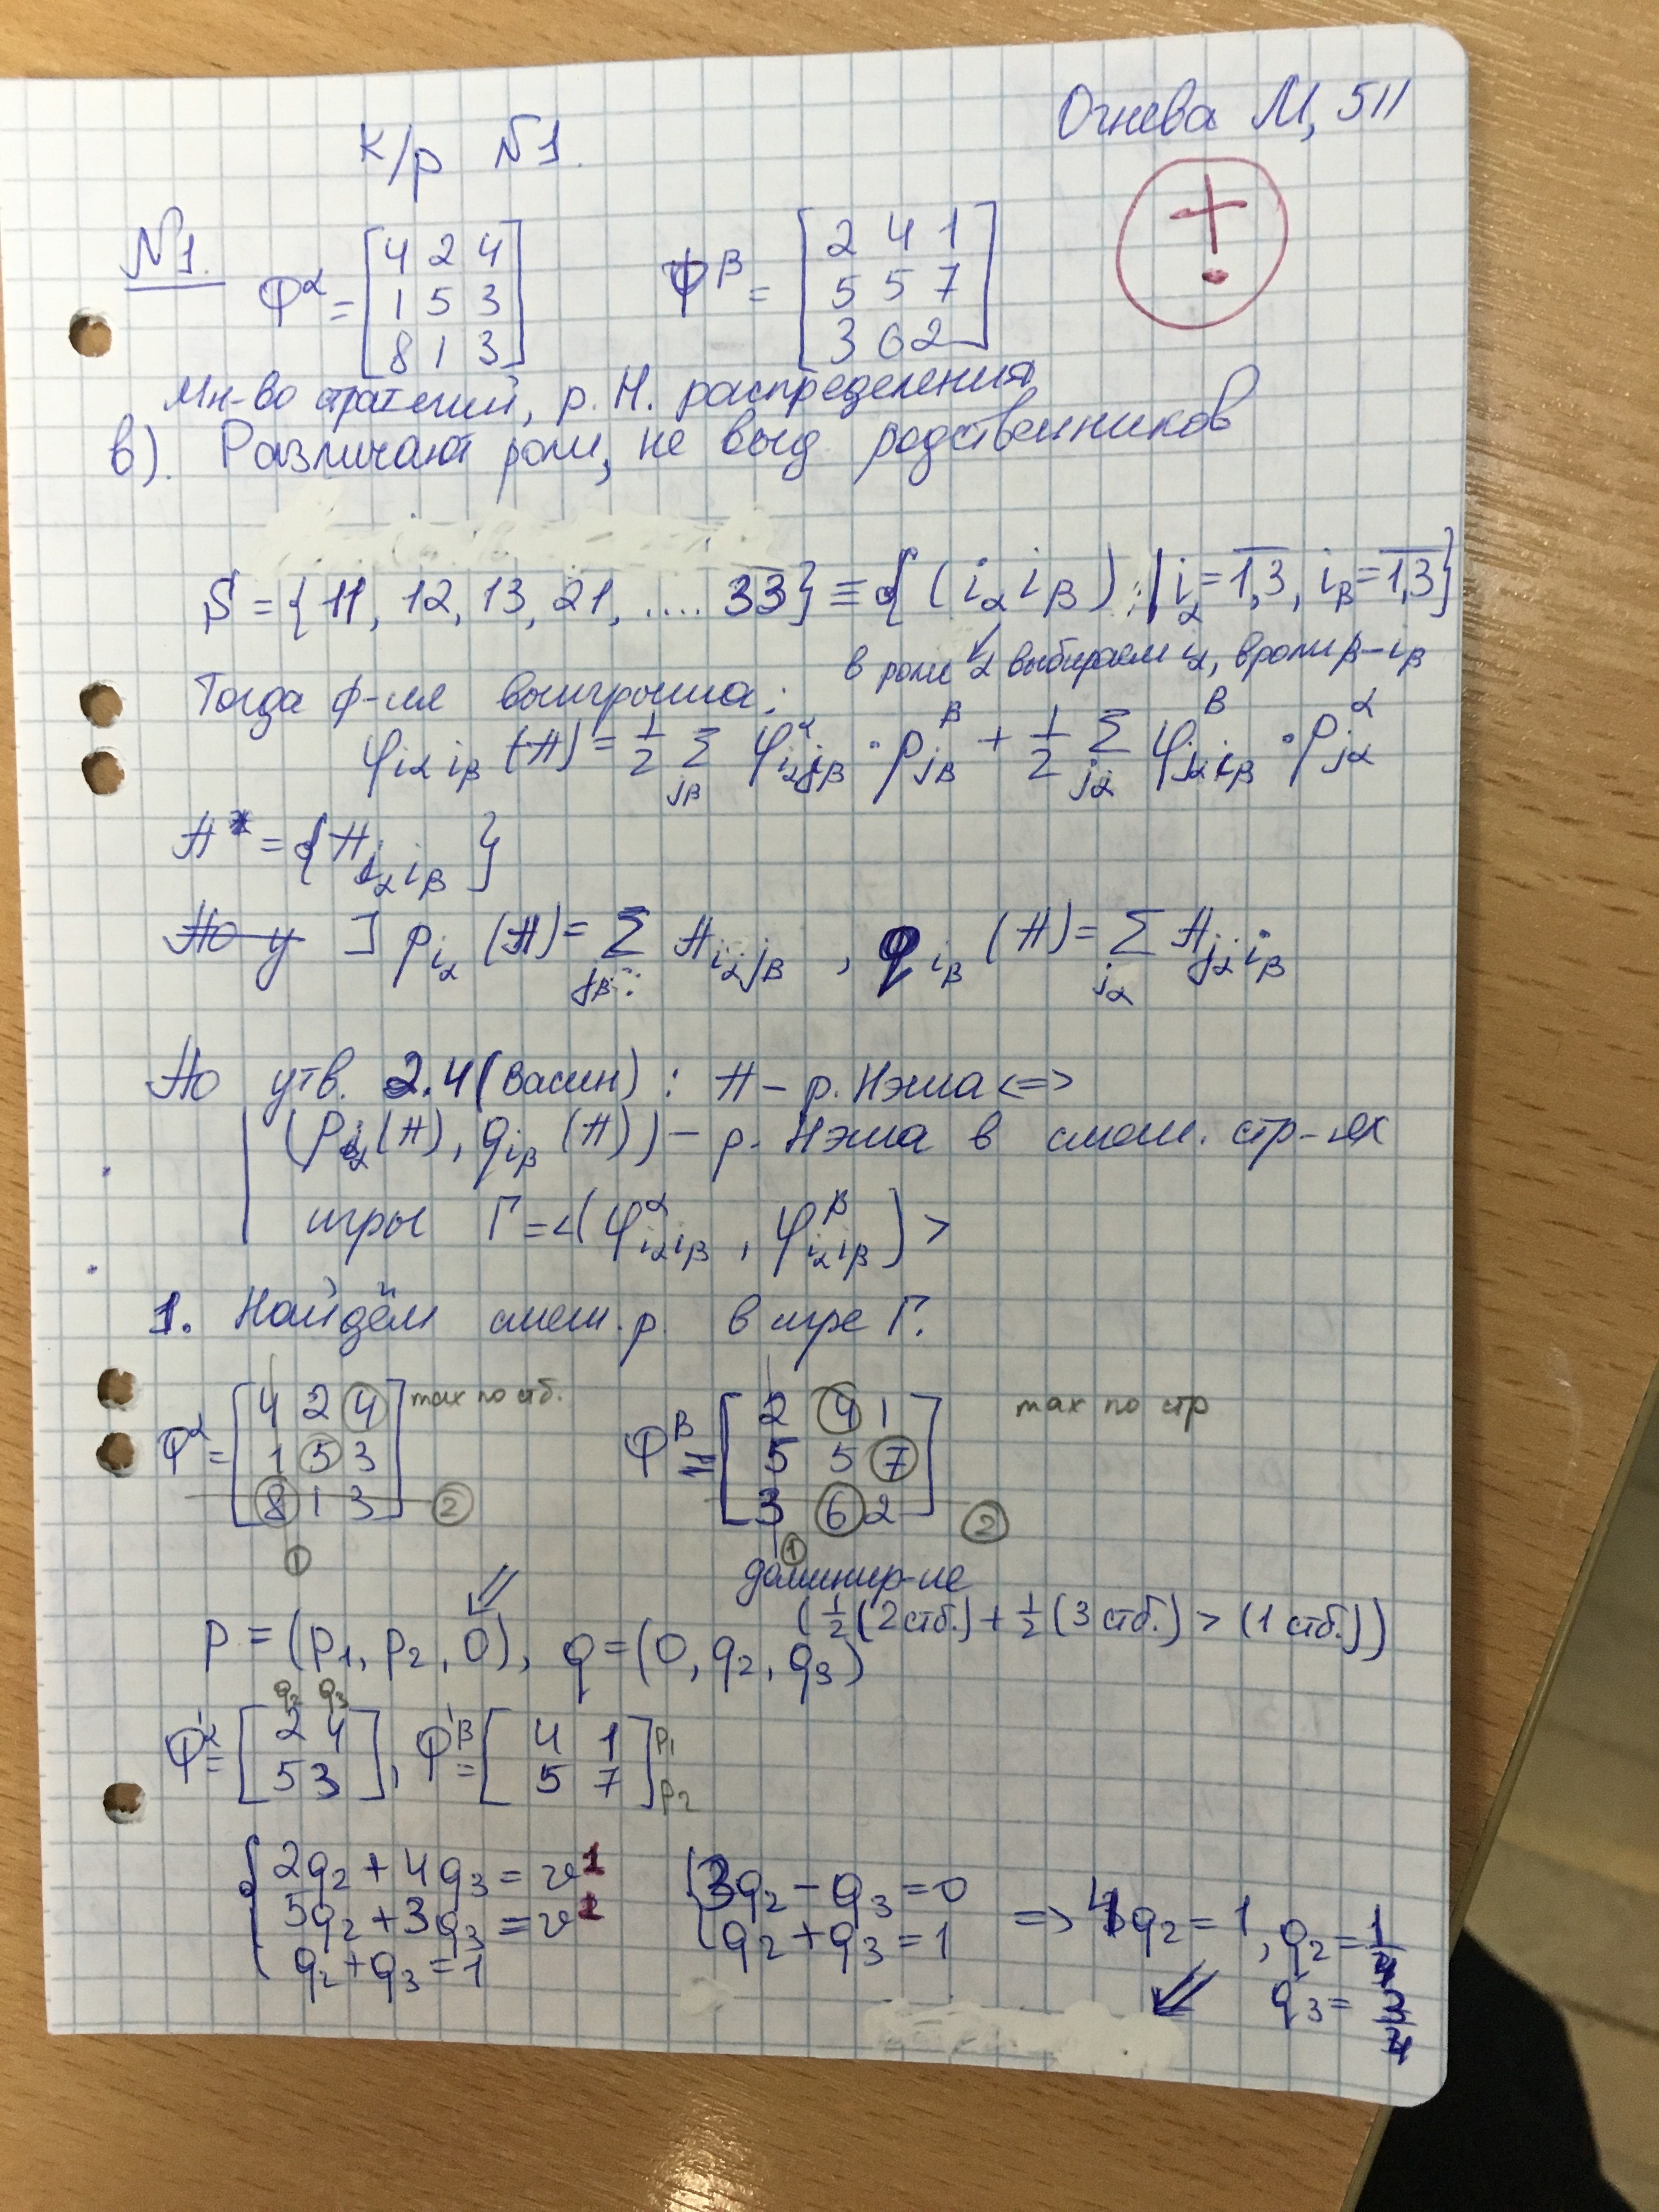 Огнева М, 511
К/р №1.
+.
№1. Φ^α = [4 2 4; 1 5 3; 8 1 3] Φ^β = [2 4 1; 5 5 7; 3 6 2]
Мн-во стратегий, р. Н. распределения
в). Различают роли, не выд родственников
S = {11, 12, 13, 21, .... 33} ≡ {(i_α i_β) | i_α = 1,3, i_β = 1,3}
в роли α выбираем i_α, в роли β – i_β
Тогда ф-ия выигрыша:
φ_{i_α i_β}(π) = 1/2 Σ_{j_β} φ^α_{i_α j_β} · p^β_{j_β} + 1/2 Σ_{j_α} φ^β_{j_α i_β} · p^α_{j_α}
π* = {π_{i_α i_β}}
По у ] p_{i_α}(π) = Σ_{j_β} π_{i_α j_β}, q_{i_β}(π) = Σ_{j_α} π_{j_α i_β}
По утв. 2.4 (Васин): π – р. Нэша <=>
(p_{i_α}(π), q_{i_β}(π)) – р. Нэша в смеш. стр-ях
игры Γ = <(φ^α_{i_α i_β}, φ^β_{i_α i_β})>
1. Найдём смеш. р. в игре Γ.
Φ^α = [4 2 4; 1 5 3; 8 1 3] max по стб. Φ^β = [2 4 1; 5 5 7; 3 6 2] max по стр
② ②
① ①
доминир-ие
(1/2 (2 стб.) + 1/2 (3 стб.) > (1 стб.))
p = (p1, p2, 0), q = (0, q2, q3)
q2 q3
Φ'^α = [2 4; 5 3], Φ'^β = [4 1; 5 7] p1 p2
{2q2 + 4q3 = v1 {3q2 – q3 = 0
5q2 + 3q3 = v1 q2 + q3 = 1 => 4q2 = 1, q2 = 1/4
q2 + q3 = 1 q3 = 3/4